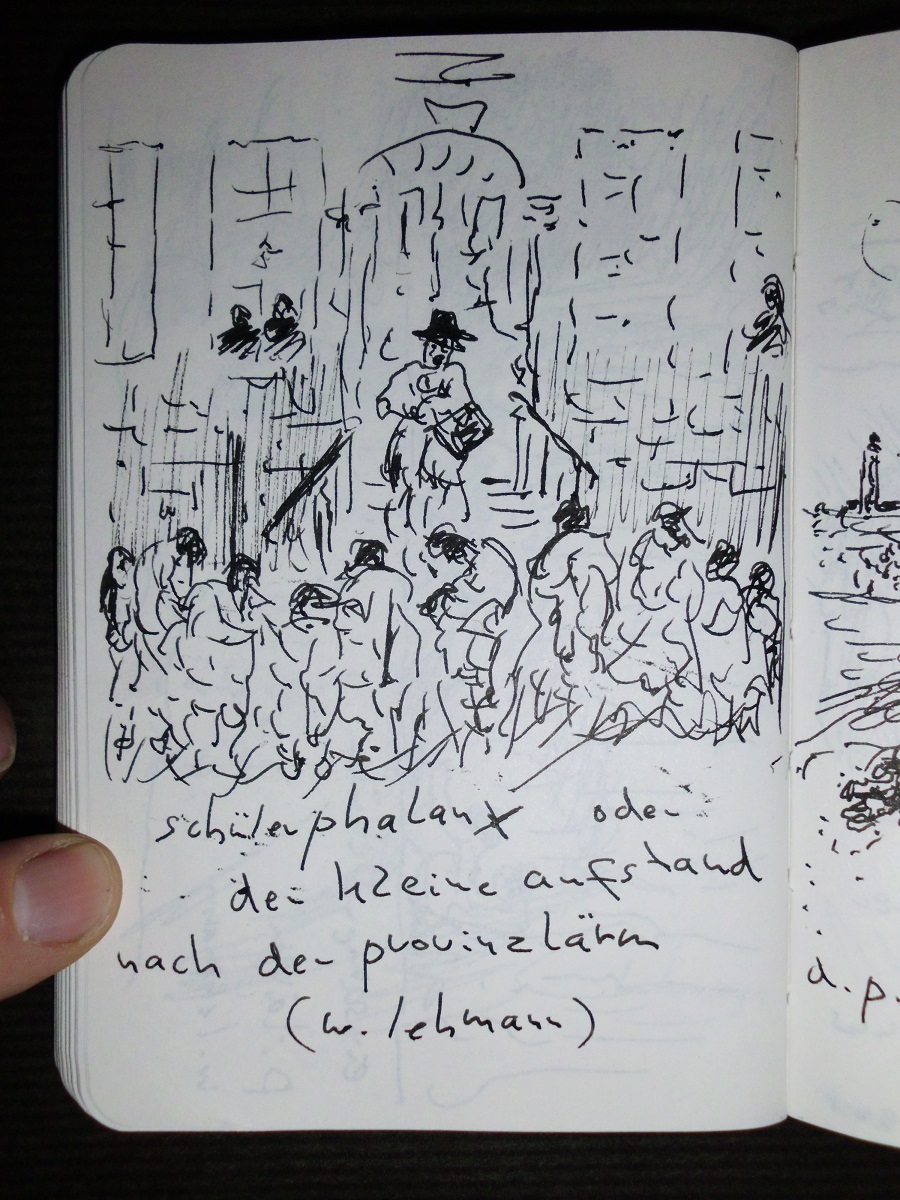 schülerphalanx oder
der kleine aufstand
nach der provinzlärm
(w. lehmann)
d. p.